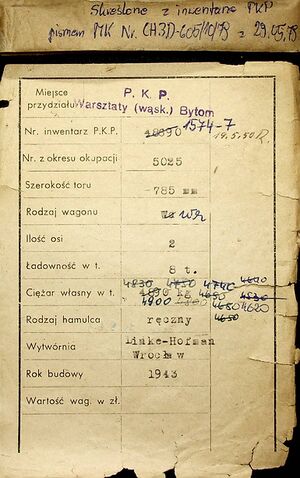 Skreślono z inwentarza PKP
pismem MK Nr. CH3D-605/10/78 z 29.05.78
Miejsce przydziału P. K. P.
Warsztaty (wąsk.) Bytom
Nr. inwentarz P.K.P. 18990 1574-7 19.5.50
Nr. z okresu okupacji 5025
Szerokość toru 785 mm
Rodzaj wagonu Wz Wh
Ilość osi 2
Ładowność w t. 8 t.
4830 4750 4740 4690
Ciężar własny w t. 4890 kg 4650 4830
4900 4680 4620
4650
Rodzaj hamulca ręczny
Wytwórnia Linke-Hofman
Wrocław
Rok budowy 1943
Wartość wag. w zł.